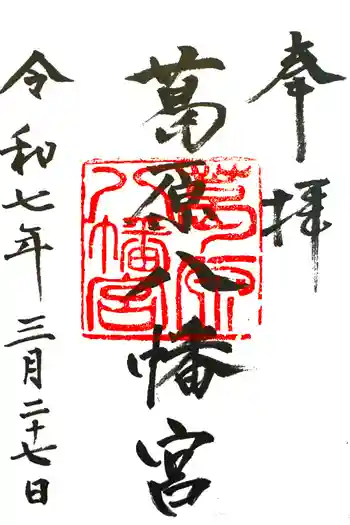 奉拝
葛原八幡宮
葛原八幡宮
令和七年三月二十七日